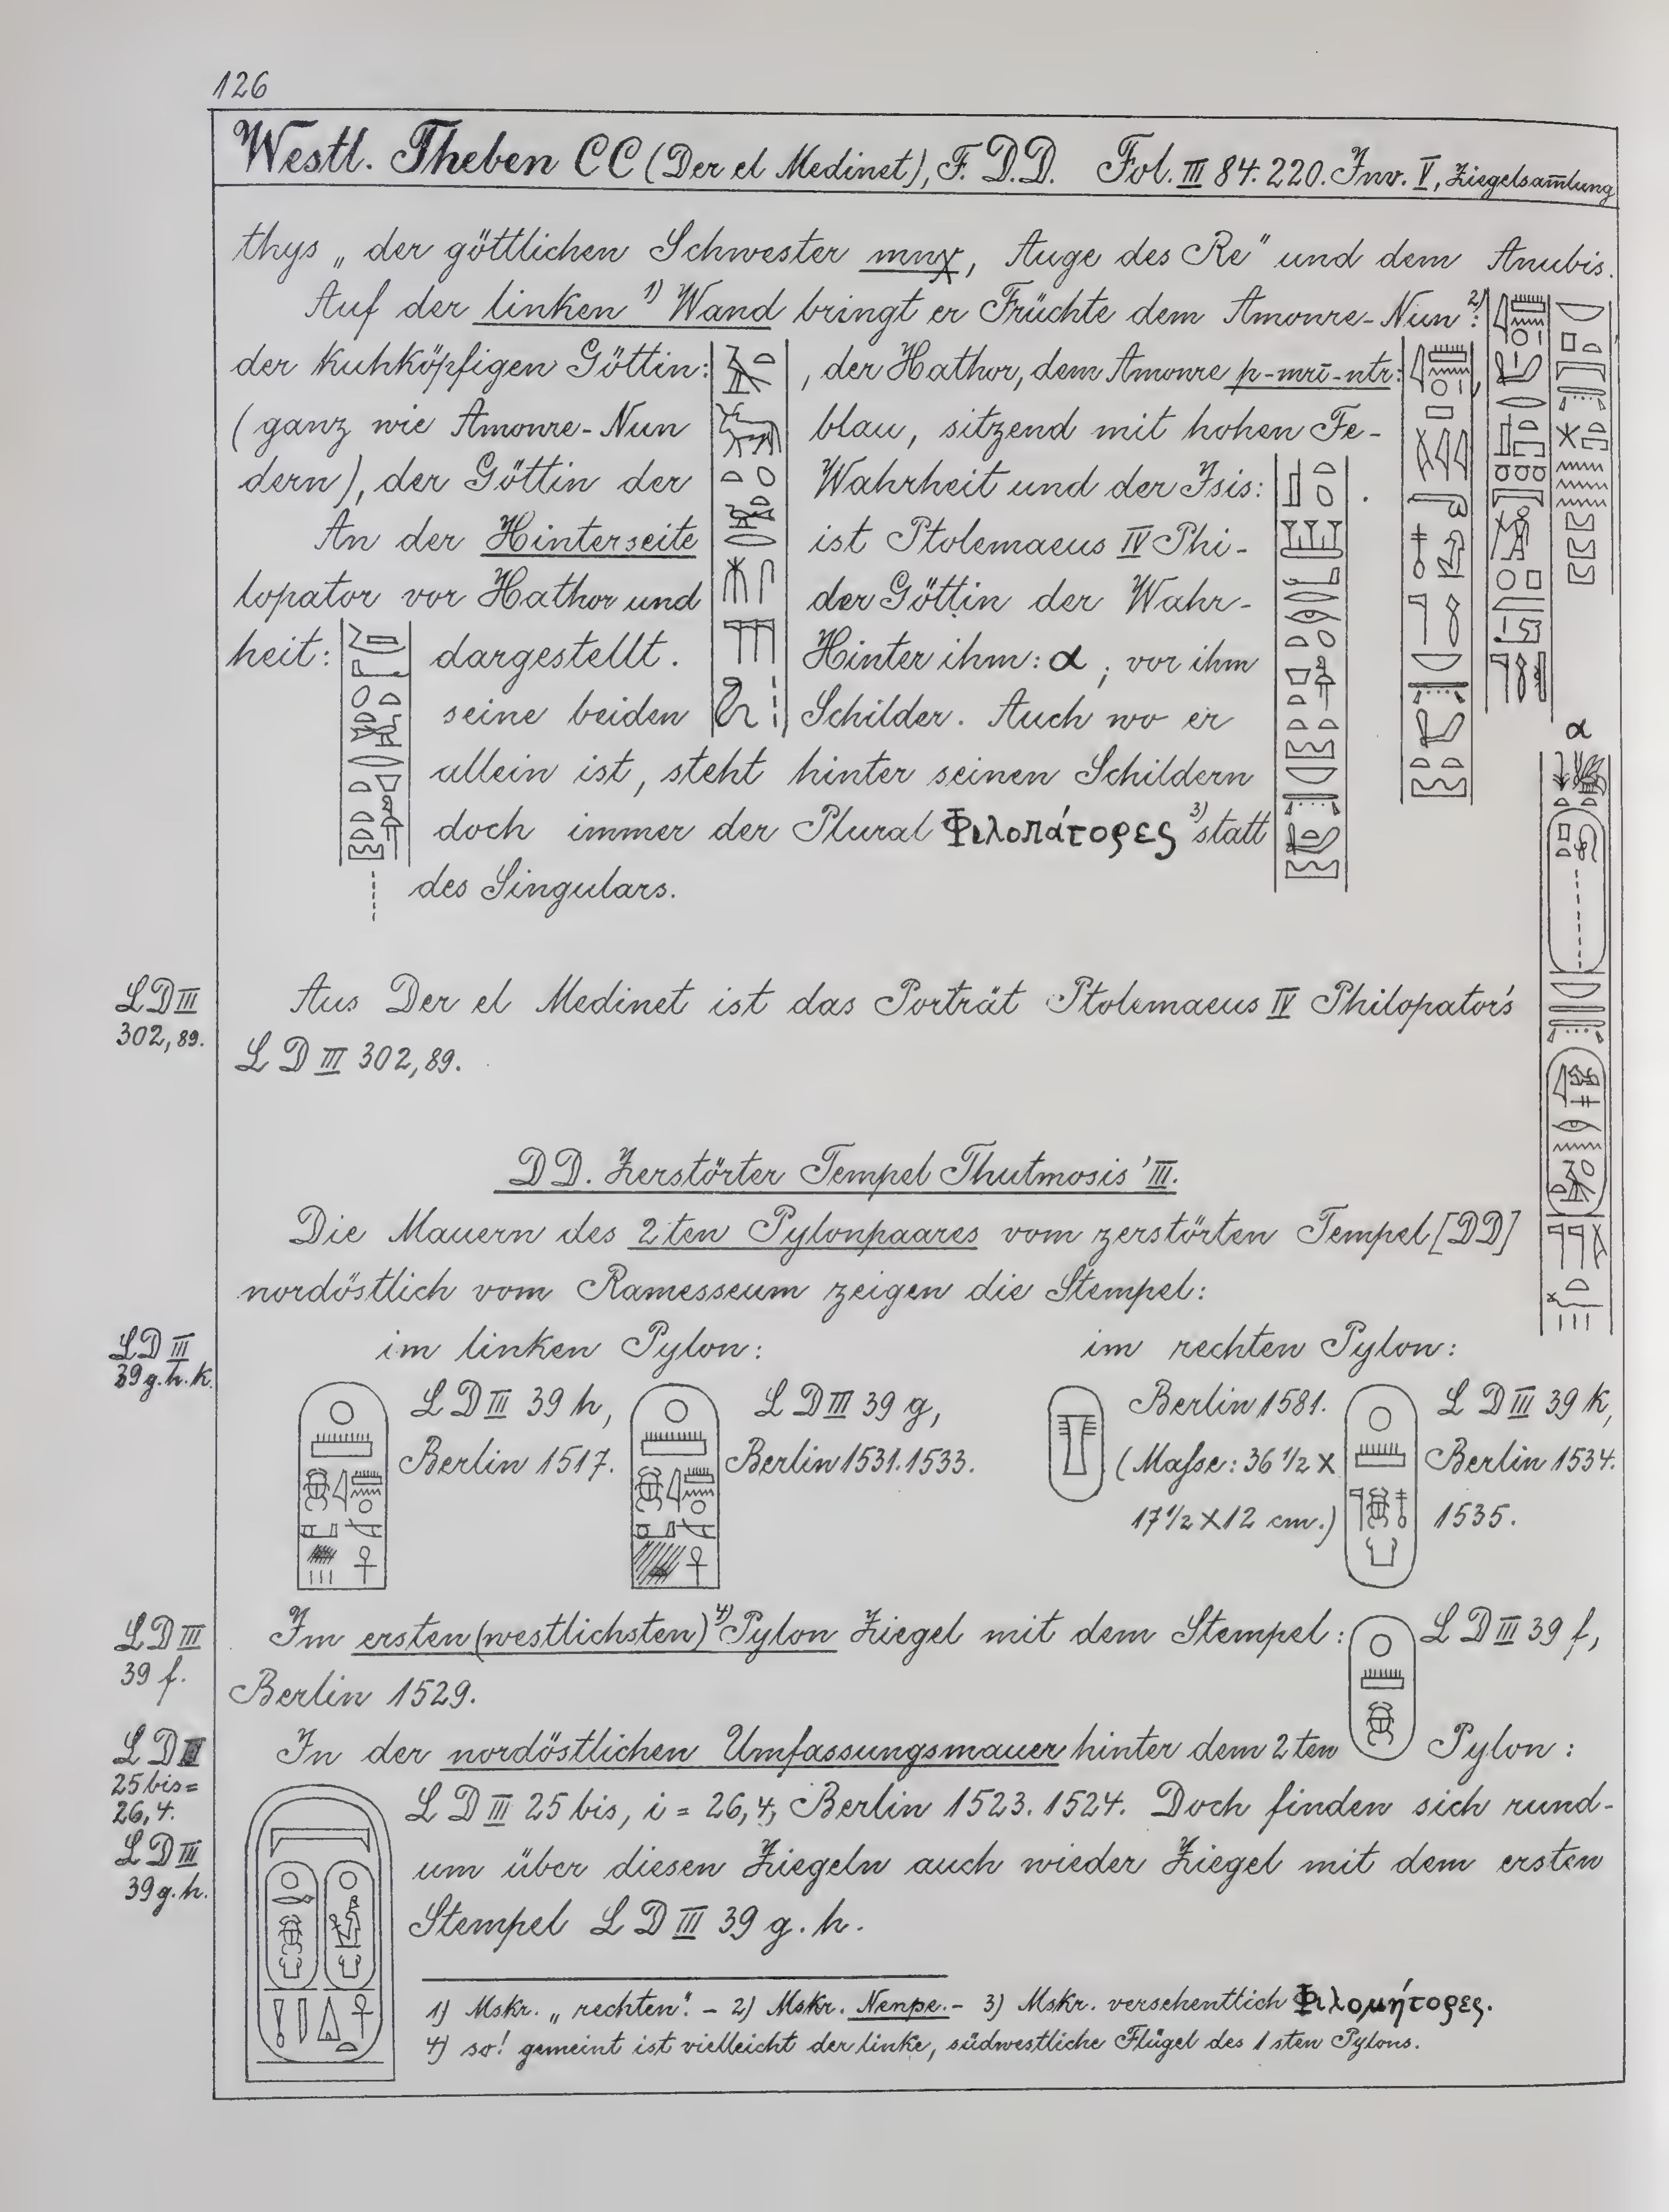 126
Westl. Theben CC (Der el Medinet), F. D.D. Fol. III 84. 220. Inv. V, Ziegelsam̄lung
thys „der göttlichen Schwester mnχ, Auge des Re" und dem Anubis.
Auf der linken 1) Wand bringt er Früchte dem Amonre-Nun 2):
der kuhköpfigen Göttin: , der Hathor, dem Amonre p-mrī-ntr:
(ganz wie Amonre-Nun blau, sitzend mit hohen Fe-
dern), der Göttin der Wahrheit und der Isis: .
An der Hinterseite ist Ptolemaeus IV Phi-
lopator vor Hathor und der Göttin der Wahr-
heit: dargestellt. Hinter ihm: α , vor ihm
seine beiden Schilder. Auch wo er
allein ist, steht hinter seinen Schildern
doch immer der Plural Φιλοπάτορες 3) statt
des Singulars.
α
LD III
302, 89.
Aus Der el Medinet ist das Porträt Ptolemaeus IV Philopator's
LD III 302, 89.
DD. Zerstörter Tempel Thutmosis' III.
Die Mauern des 2ten Pylonpaares vom zerstörten Tempel [DD]
nordöstlich vom Ramesseum zeigen die Stempel:
LD III
39 g. h. k.
im linken Pylon: im rechten Pylon:
LD III 39 h, LD III 39 g, Berlin 1581. LD III 39 k,
Berlin 1517. Berlin 1531. 1533. (Maſse: 36 1/2 × Berlin 1534.
17 1/2 × 12 cm.) 1535.
LD III
39 f.
Im ersten (westlichsten) 4) Pylon Ziegel mit dem Stempel: LD III 39 f,
Berlin 1529.
LD III
25 bis =
26, 4.
LD III
39 g. h.
In der nordöstlichen Umfassungsmauer hinter dem 2ten Pylon:
LD III 25 bis, i = 26, 4, Berlin 1523. 1524. Doch finden sich rund-
um über diesen Ziegeln auch wieder Ziegel mit dem ersten
Stempel LD III 39 g. h.
1) Mskr. „rechten". – 2) Mskr. Nenpe. – 3) Mskr. versehentlich Φιλομήτορες.
4) so! gemeint ist vielleicht der linke, südwestliche Flügel des 1sten Pylons.